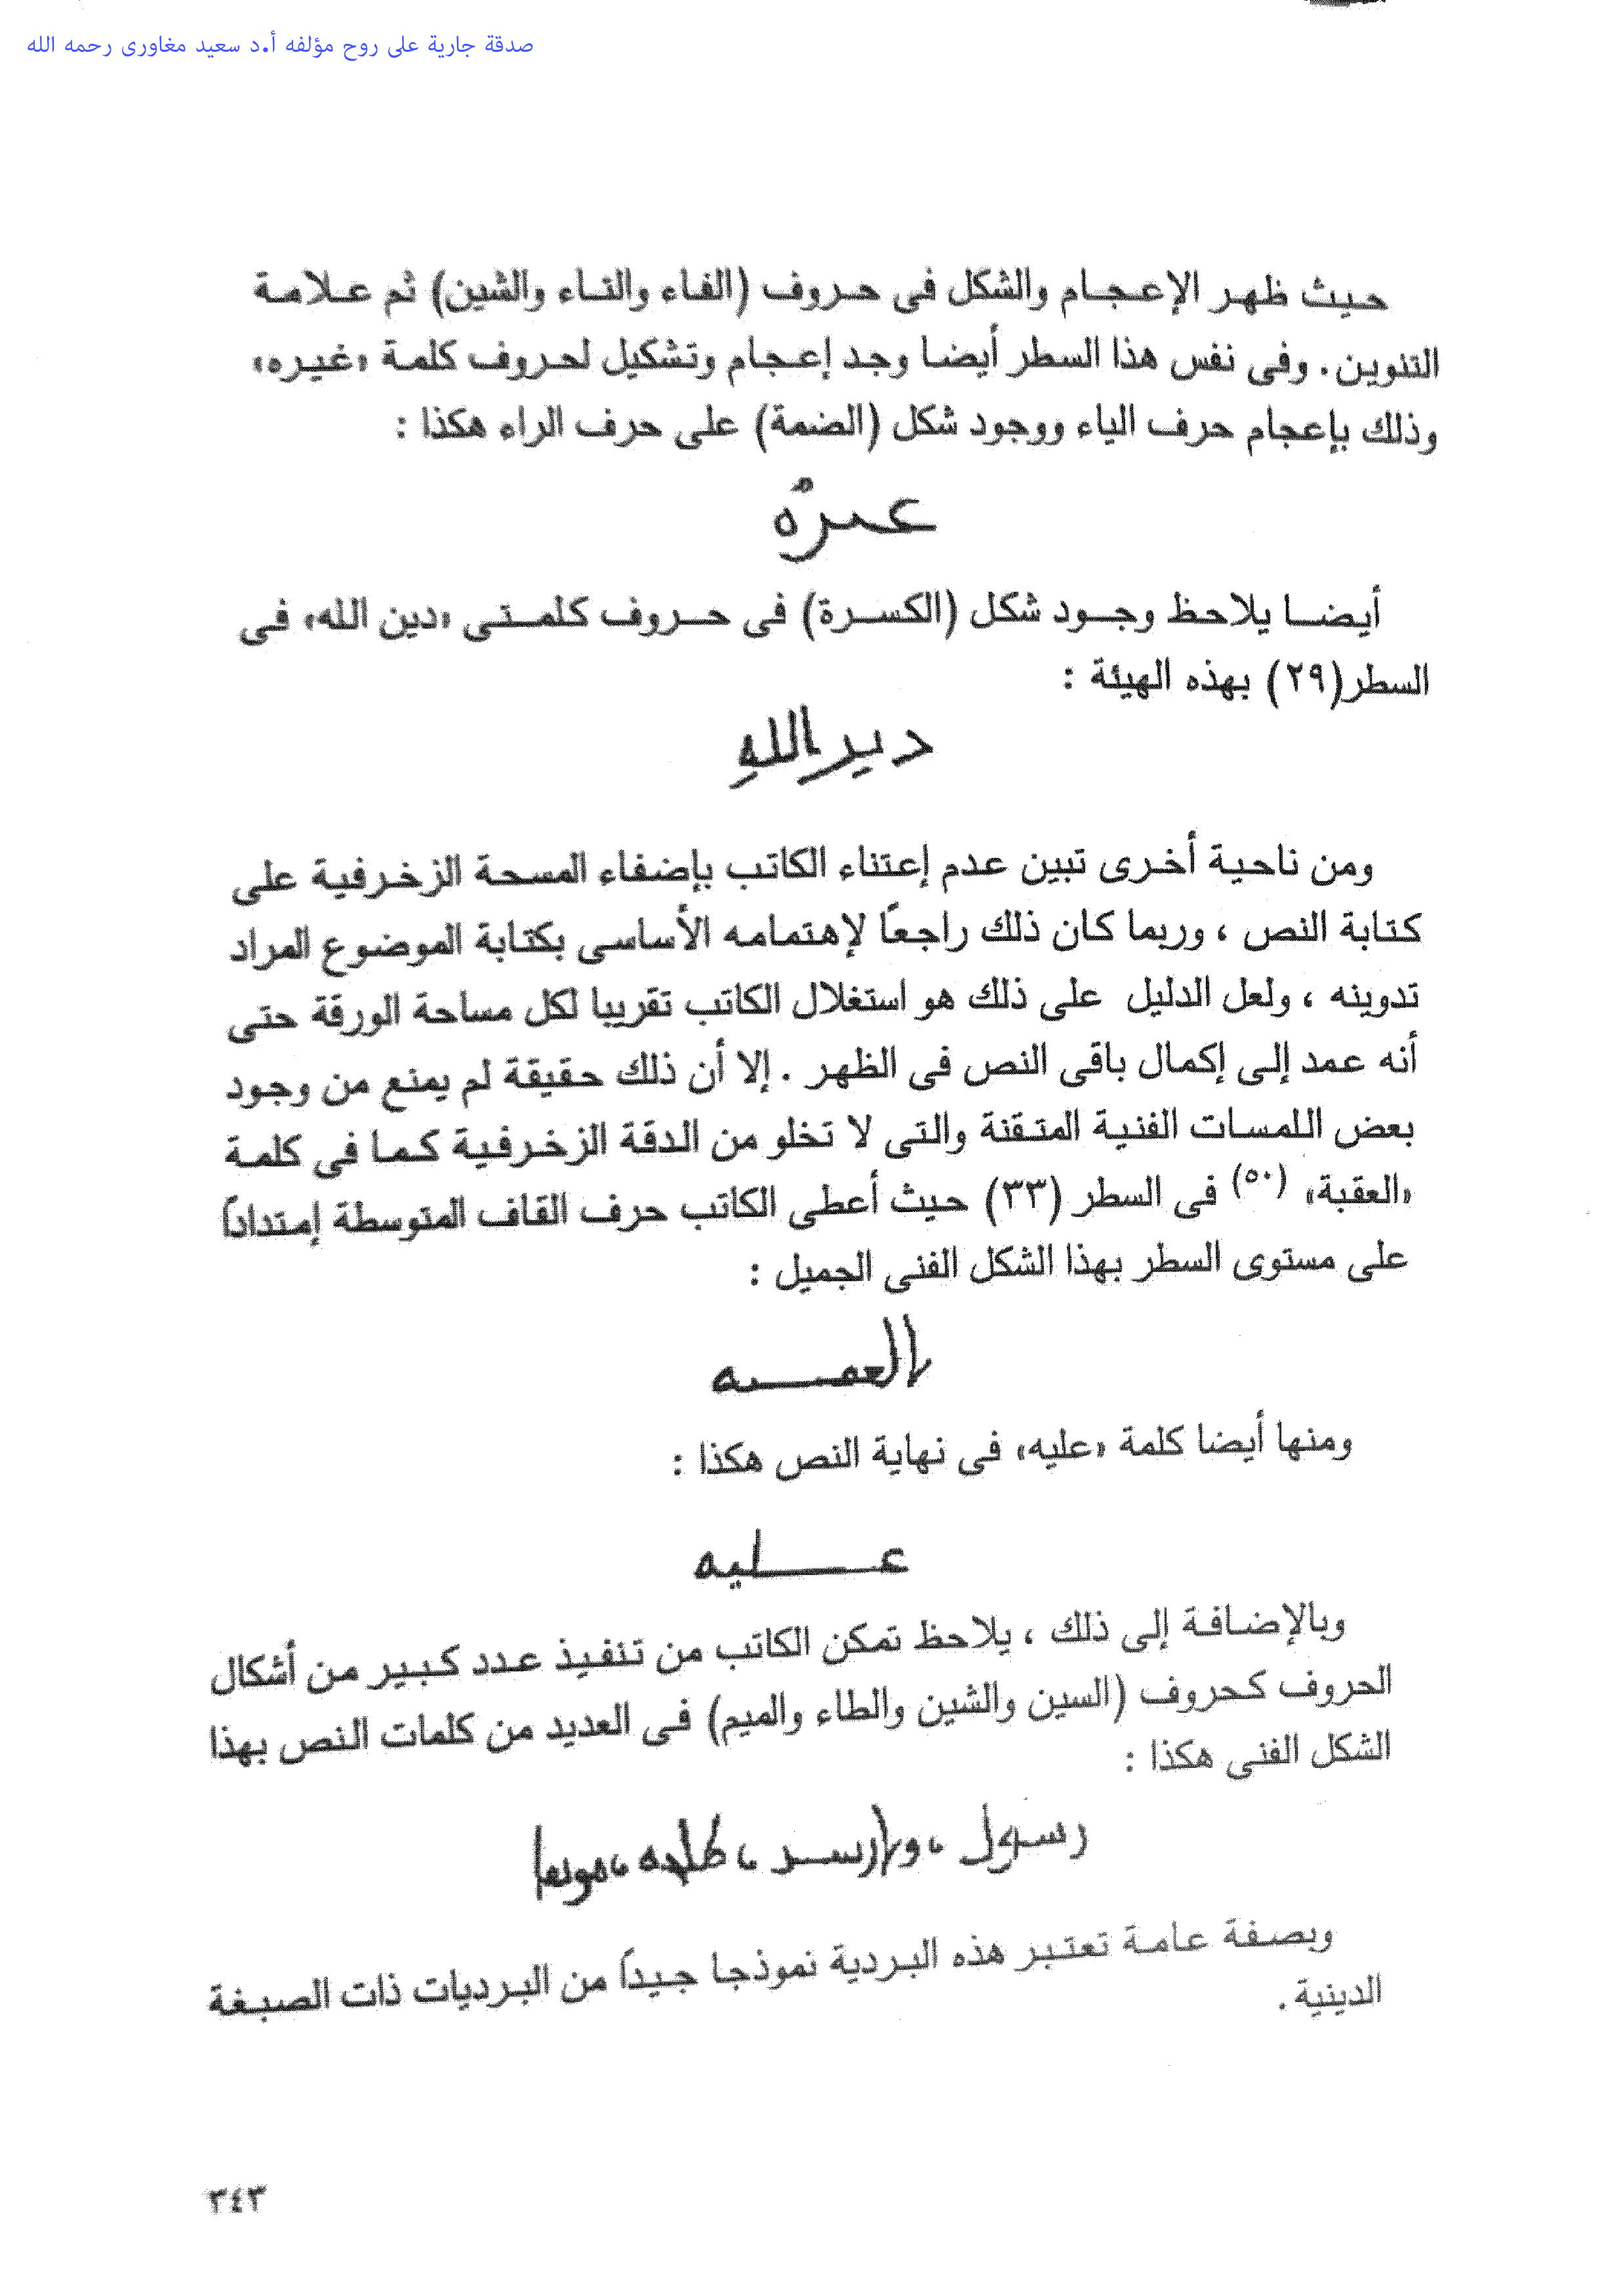 صدقة جارية على روح مؤلفه أ.د سعيد مغاورى رحمه الله
حيث ظهر الإعجام والشكل فى حروف (الفاء والتاء والشين) ثم علامة
التنوين . وفى نفس هذا السطر أيضا وجد إعجام وتشكيل لحروف كلمة «غيره»
وذلك بإعجام حرف الياء ووجود شكل (الضمة) على حرف الراء هكذا :
عىرُه
أيضا يلاحظ وجود شكل (الكسرة) فى حروف كلمتى «دين الله» فى
السطر(٢٩) بهذه الهيئة :
دىں اللهِ
ومن ناحية أخرى تبين عدم إعتناء الكاتب بإضفاء المسحة الزخرفية على
كتابة النص ، وربما كان ذلك راجعاً لإهتمامه الأساسى بكتابة الموضوع المراد
تدوينه ، ولعل الدليل على ذلك هو استغلال الكاتب تقريبا لكل مساحة الورقة حتى
أنه عمد إلى إكمال باقى النص فى الظهر . إلا أن ذلك حقيقة لم يمنع من وجود
بعض اللمسات الفنية المتقنة والتى لا تخلو من الدقة الزخرفية كما فى كلمة
«العقبة» (٥٠) فى السطر (٣٣) حيث أعطى الكاتب حرف القاف المتوسطة إمتداداً
على مستوى السطر بهذا الشكل الفنى الجميل :
العٯـــىه
ومنها أيضا كلمة «عليه» فى نهاية النص هكذا :
عـــليه
وبالإضافة إلى ذلك ، يلاحظ تمكن الكاتب من تنفيذ عدد كبير من أشكال
الحروف كحروف (السين والشين والطاء والميم) فى العديد من كلمات النص بهذا
الشكل الفنى هكذا :
رسول ،
وبصفة عامة تعتبر هذه البردية نموذجا جيداً من البرديات ذات الصبغة
الدينية .
٣٤٣